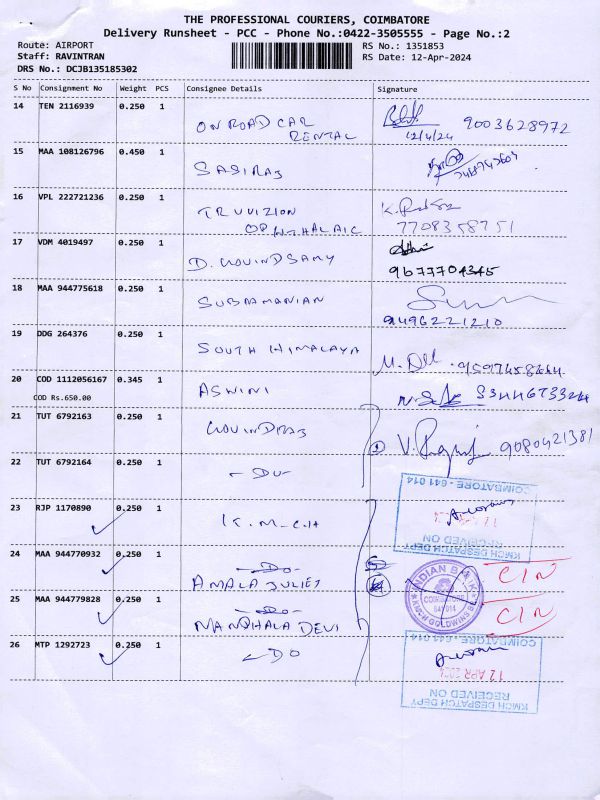 THE PROFESSIONAL COURIERS, COIMBATORE
Delivery Runsheet - PCC - Phone No.:0422-3505555 - Page No.:2
Route: AIRPORT RS No.: 1351853
Staff: RAVINTRAN RS Date: 12-Apr-2024
DRS No.: DCJB135185302
S No Consignment No Weight PCS Consignee Details Signature
14 TEN 2116939 0.250 1 ON ROAD CAR RENTAL 12/4/24 9003628972
15 MAA 108126796 0.450 1 SASIRAJ
16 VPL 222721236 0.250 1 TRUVIZION OPHTHALAIC 7708358751
17 VDM 4019497 0.250 1 D. GOVINDSAMY 9677704345
18 MAA 944775618 0.250 1 SUBRAMANIAN 9496221210
19 DDG 264376 0.250 1 SOUTH HIMALAYA
20 COD 1112056167 0.345 1 ASWINI
COD Rs.650.00
21 TUT 6792163 0.250 1 GOVINDRAJ 9080421381
22 TUT 6792164 0.250 1 -DO-
COIMBATORE - 641 014
23 RJP 1170890 0.250 1 K.M.C.H
RECEIVED ON
KMCH DESPATCH DEPT
24 MAA 944770932 0.250 1 -DO-
AMALA JULIET
INDIAN BANK
COIMBATORE
641 014
KMCH GOLDWINS BR
C/N
25 MAA 944779828 0.250 1 -DO-
NANDHALA DEVI
C/N
26 MTP 1292723 0.250 1 -DO
COIMBATORE - 641 014
12 APR 2024
RECEIVED ON
KMCH DESPATCH DEPT